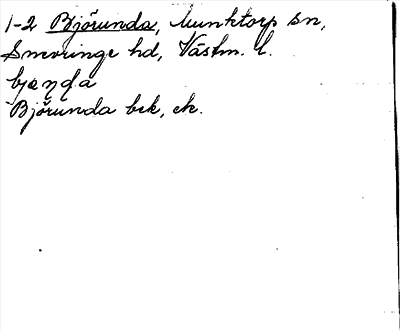 1-2 Björunda, Munktorp sn,
Snevringe hd, Västm. l.
Björunda bek, ek.